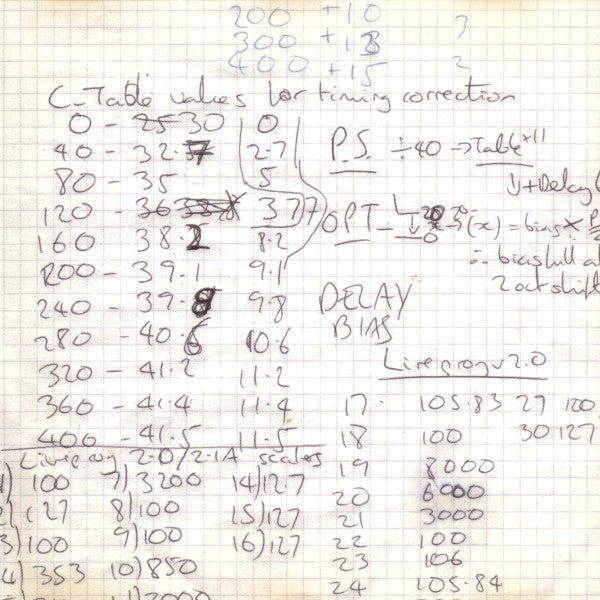 200 +10
300 +13 3
400 +15 2
C-Table values for timing correction
0 - 25 30 0
40 - 32.7 2.7
80 - 35 5
120 - 37 7
160 38.2 8.2
200 - 39.1 9.1
240 - 39.8 9.8
280 - 40.6 10.6
320 - 41.2 11.2
360 - 41.4 11.4
400 - 41.5 11.5
P.S. ÷40 → Table
+Delay
OPT -
(x) = bias
∴ bias full
2 oct shift
DELAY
BIAS
Liveprog v2.0
17 - 105.83 27 100
18 100 30 127
19 8000
20 6000
21 3000
22 100
23 106
24 105.84
Liveprog 2.0/2.1A scales
1) 100 7) 3200 14) 12.7
2) 127 8) 100 15) 127
3) 100 9) 100 16) 127
4) 353 10) 850